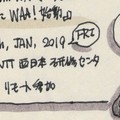 WAA! 始動』
JAN, 2019 FRI
NTT 西日本 研修センタ
リモート参加